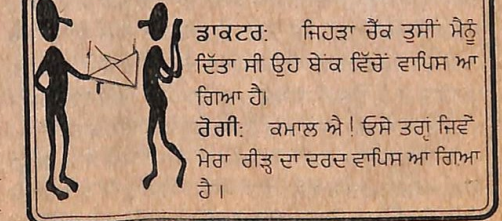 ਡਾਕਟਰ: ਜਿਹੜਾ ਚੈੱਕ ਤੁਸੀਂ ਮੈਨੂੰ
ਦਿੱਤਾ ਸੀ ਉਹ ਬੇਂਕ ਵਿੱਚੋਂ ਵਾਪਿਸ ਆ
ਗਿਆ ਹੈ।
ਰੋਗੀ: ਕਮਾਲ ਐ! ਓਸੇ ਤਰ੍ਹਾਂ ਜਿਵੇਂ
ਮੇਰਾ ਰੀੜ੍ਹ ਦਾ ਦਰਦ ਵਾਪਿਸ ਆ ਗਿਆ
ਹੈ।